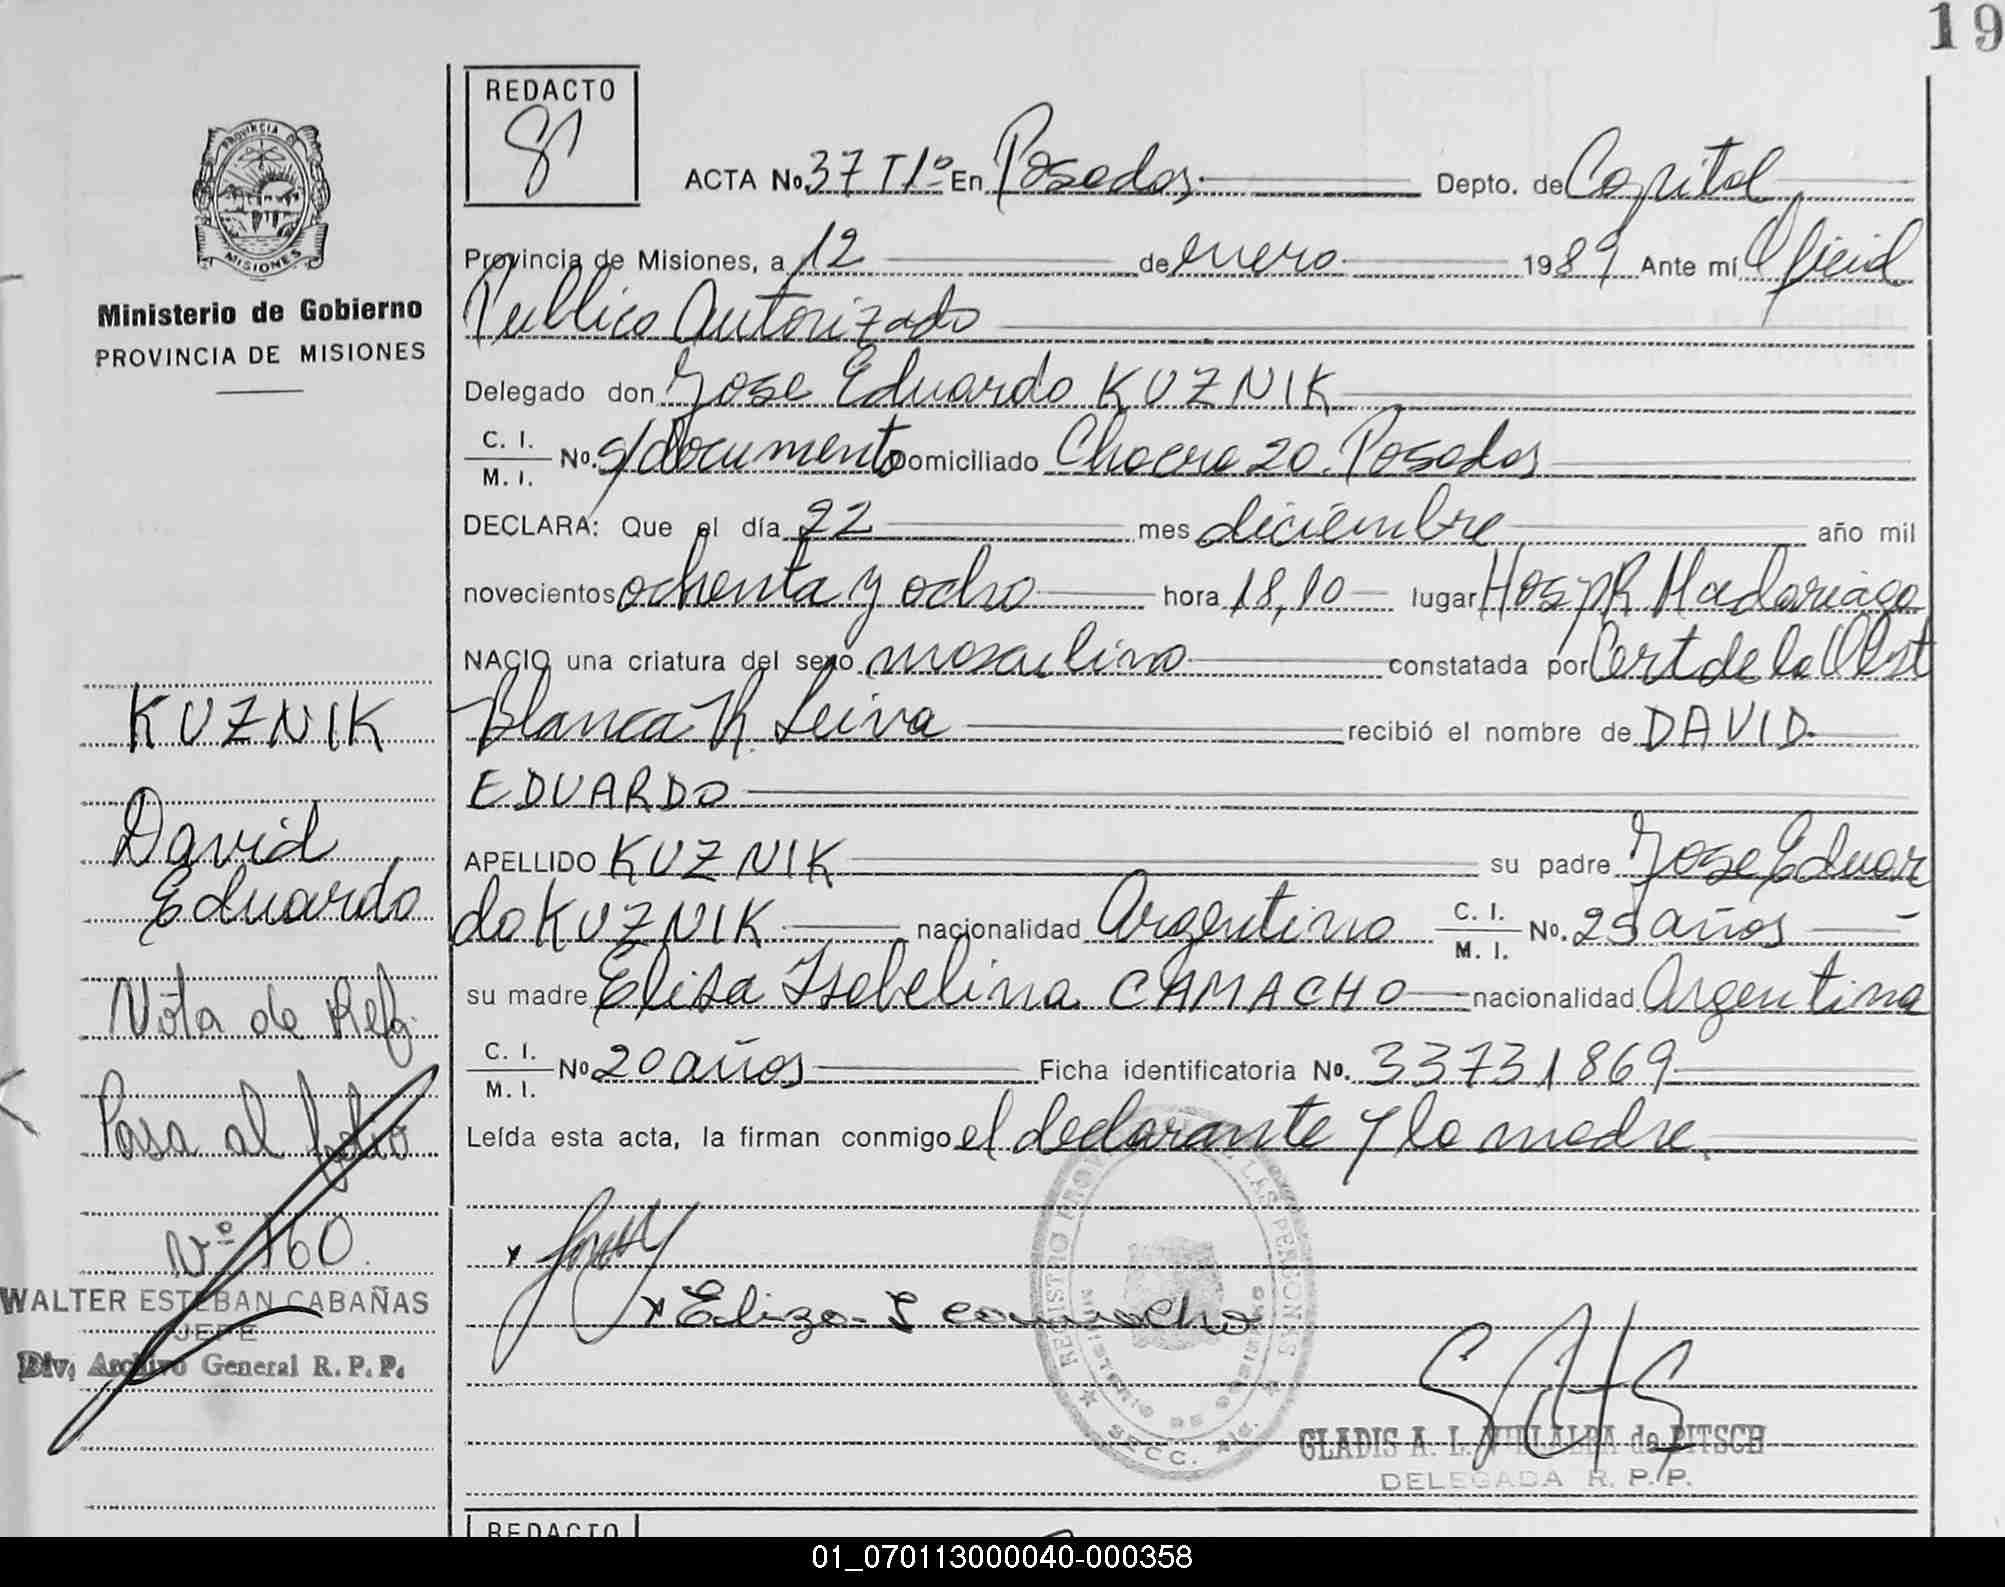 19
REDACTO
PROVINCIA DE
MISIONES
Ministerio de Gobierno
PROVINCIA DE MISIONES
ACTA No. 37 T1º En Posadas Depto. de Capital
Provincia de Misiones, a 12 de enero 1989 Ante mí Oficial
Publico Autorizado
Delegado don Jose Eduardo KUZNIK
C. I.
M. I. No. s/documento Domiciliado Chacra 20. Posadas
DECLARA: Que el día 22 mes diciembre año mil
novecientos ochenta y ocho hora 18,10 lugar Hosp R Madariaga
NACIO una criatura del sexo masculino constatada por Cert de la Obst
Blanca R. Leiva recibió el nombre de DAVID
EDUARDO
APELLIDO KUZNIK su padre Jose Eduar
do KUZNIK nacionalidad Argentino C. I. M. I. No. 25 años
su madre Elisa Isabelina CAMACHO nacionalidad Argentina
C. I.
M. I. No 20 años Ficha identificatoria No. 33731869
Leída esta acta, la firman conmigo el declarante y la madre
x Eliza I camacho
REGISTRO PROV LAS PERSONAS
SECC.
GLADIS A. L. VILLALBA de PITSCH
DELEGADA R. P. P.
KUZNIK
David
Eduardo
Nota de Refª.
Pasa al folio
Nº 160.
WALTER ESTEBAN CABAÑAS
JEFE
Div. Archivo General R. P. P.
REDACTO
01_070113000040-000358